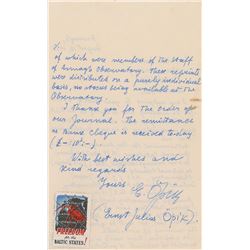 of which were members of the staff
of Armagh Observatory. These reprints
were distributed on a purely individual
basis, no stocks being available at the
Observatory.
I thank you for the order of
our Journal. The remittance
as bank cheque is received today
(£ - 10s.-)
With best wishes and
kind regards,
Yours E. Öpik
(Ernst Julius Öpik).
FREEDOM
for the
BALTIC STATES!